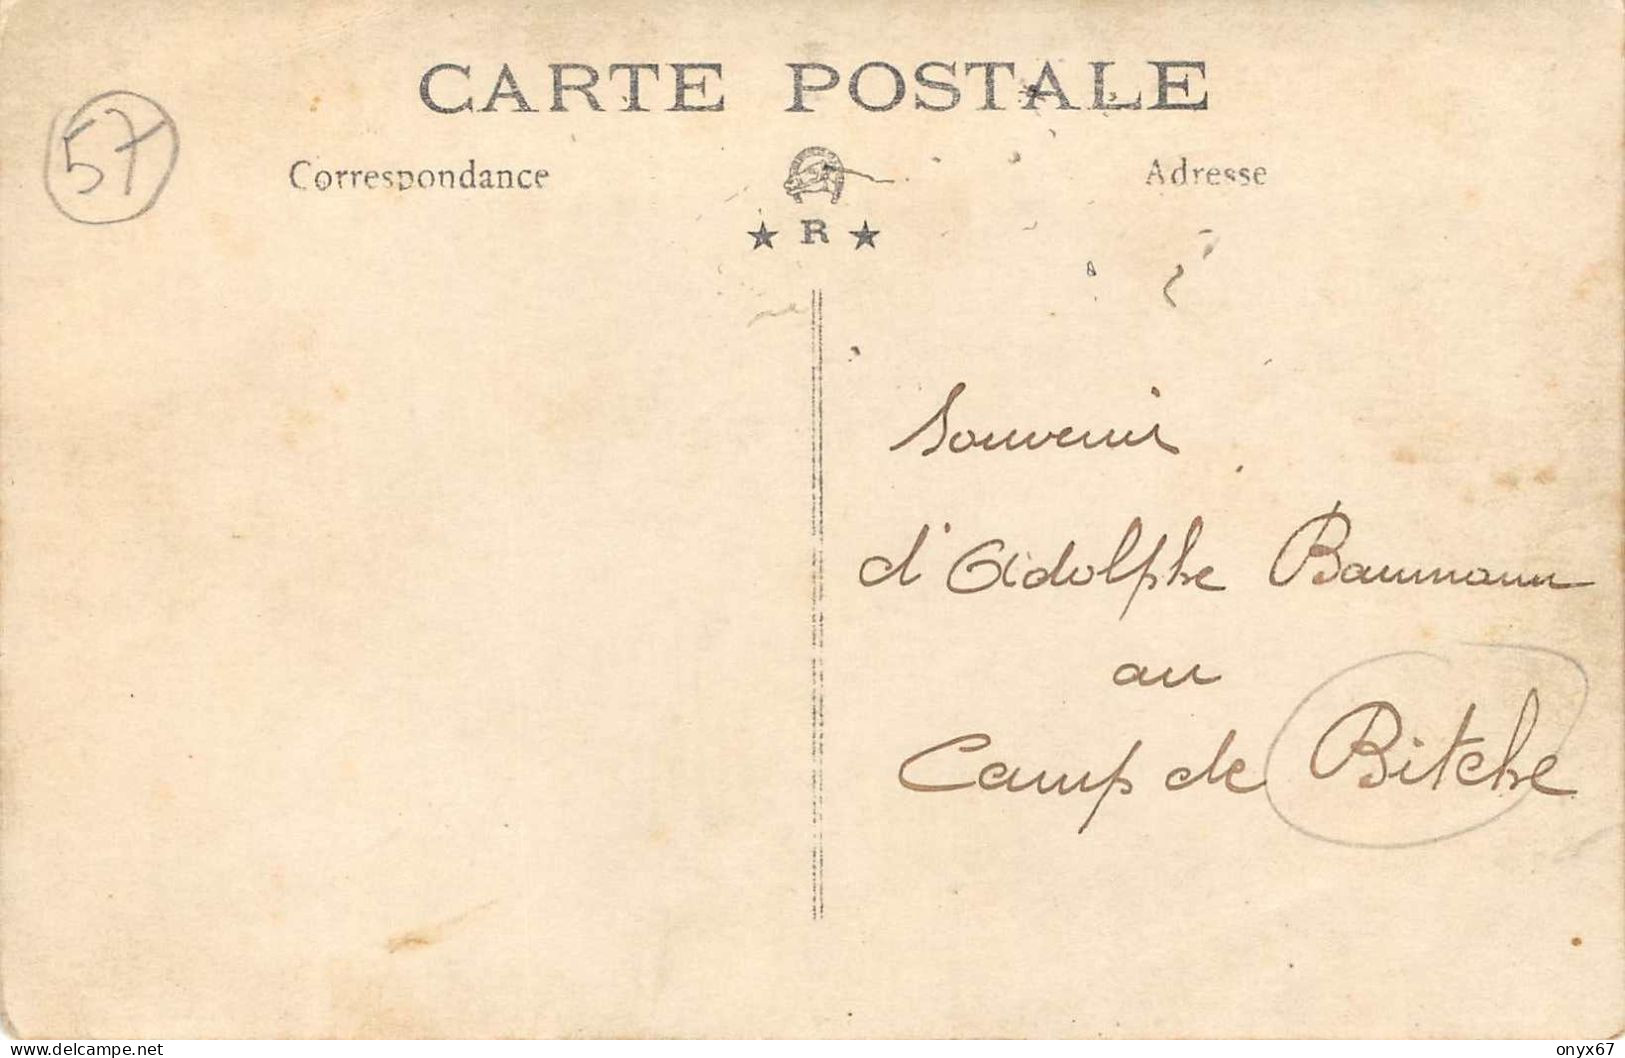 CARTE POSTALE
57
Correspondance
Adresse
★ R ★
Souvenir
d'Adolphe Baumann
au
Camp de Bitche
delcampe.net
onyx67